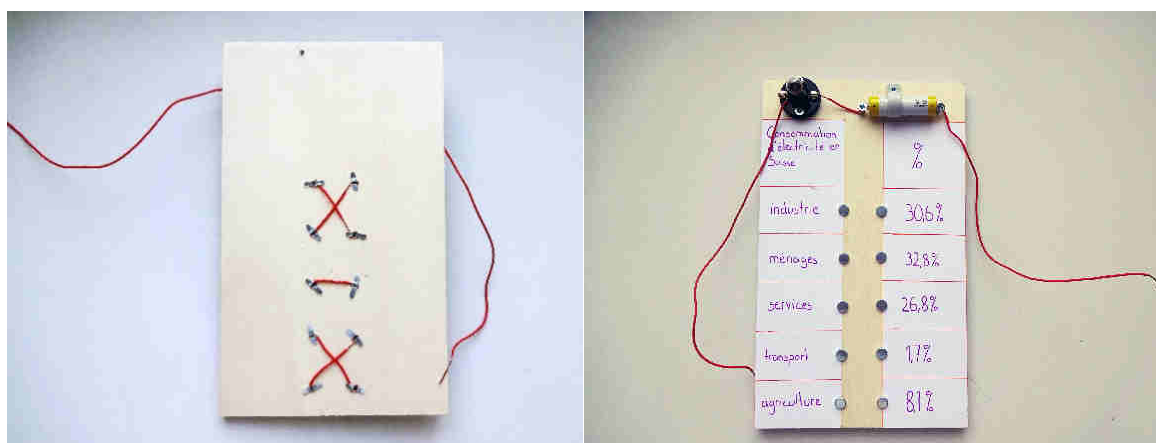 Consommation
d'électricité en
Suisse
%
industrie 30,6%
ménages 32,8%
services 26,8%
transport 1,7%
agriculture 8,1%